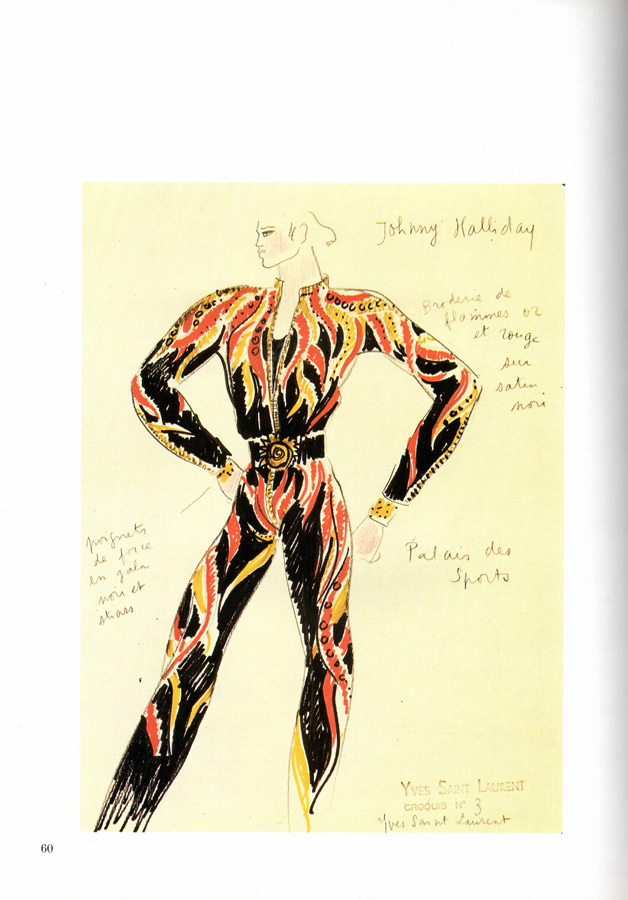 Johnny Halliday
Broderie de
flammes or
et rouge
sur
satin
noir
poignets
de force
en
noir et
strass
Palais des
Sports
YVES SAINT LAURENT
CROQUIS N° 3
Yves Saint Laurent
60